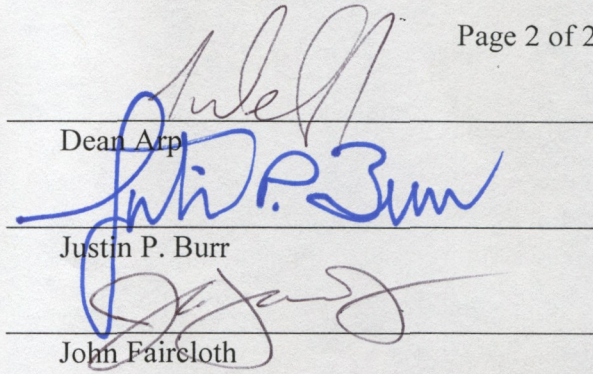 Page 2 of 2
Dean Arp
Justin P. Burr
Justin P. Burr
John Faircloth